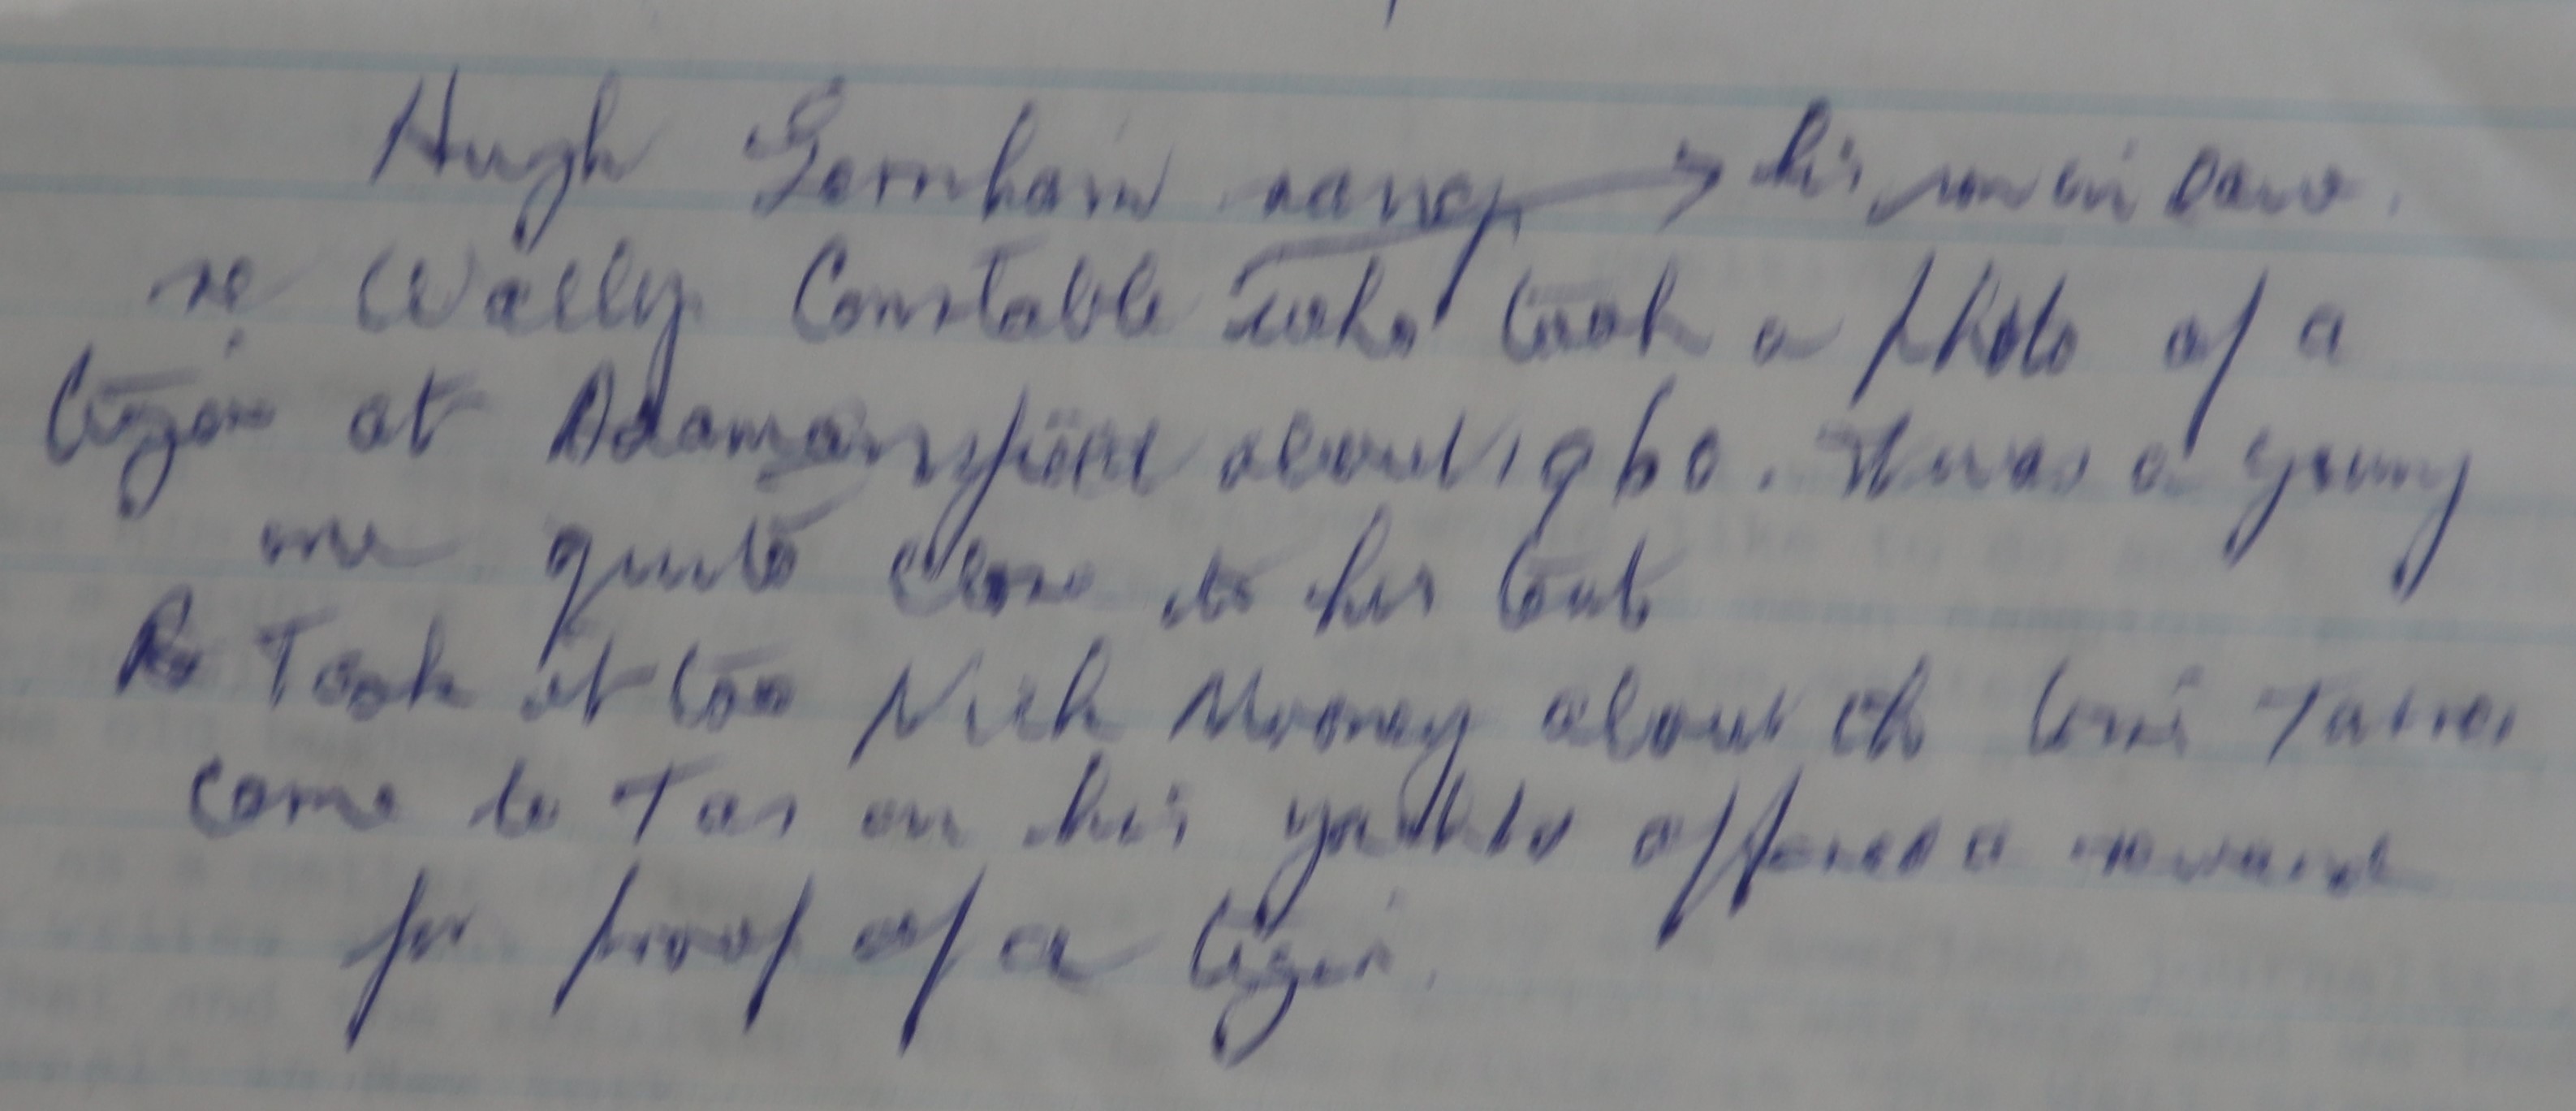 Hugh Gernhain rang → his son in law.
re Wally Constable who took a photo of a
tiger at Adamansfield about 1960. It was a young
one quite close to his tent
Took it too Nick Mooney about th time
come to Tas on his yacht offered a reward
for proof of a tiger.